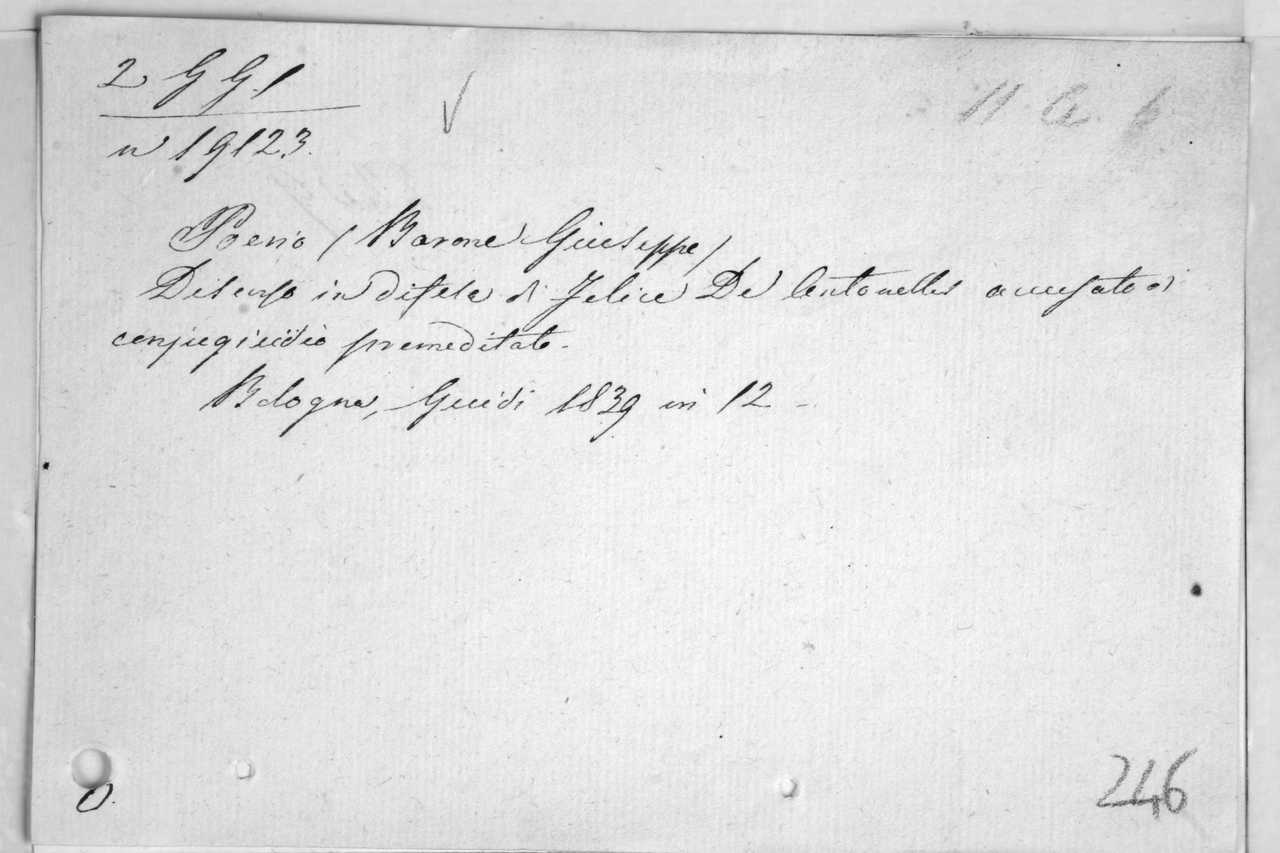 2 G G. 1
n 19123.
Poerio (Barone Giuseppe)
Discorso in difesa di Felice De Antonellis accusato di
conjugicidio premeditato.
Bologna, Guidi 1839 in 12
246